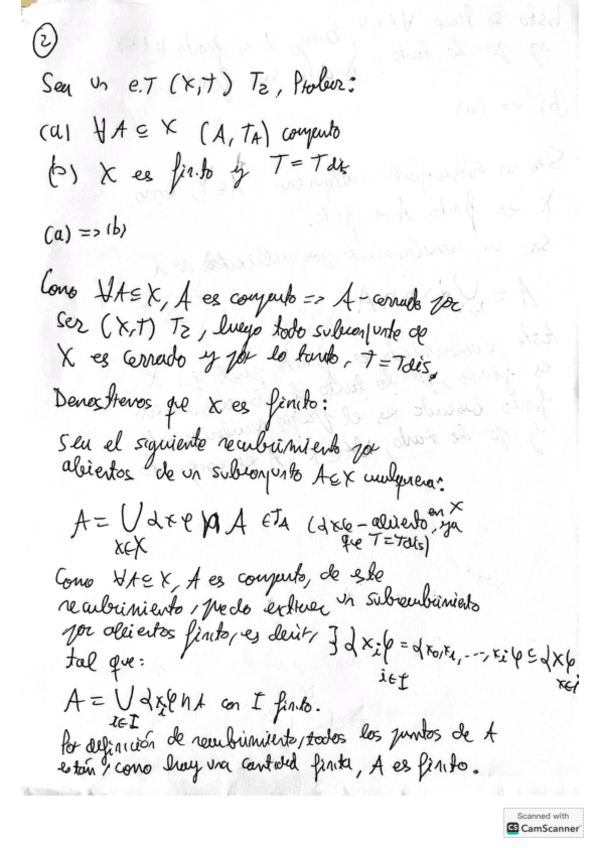 2
Sea un e.T (X,T) T₂, Probar:
(a) ∀A ⊆ X (A, T_A) compacto
(b) X es finito y T = Tdis
(a) => (b)
Como ∀A ⊆ X, A es compacto => A-cerrado por
ser (X,T) T₂, luego todo subconjunto de
X es cerrado y por lo tanto, T = Tdis.
Demostremos que X es finito:
Sea el siguiente recubrimiento por
abiertos de un subconjunto A ⊆ X cualquiera:
A = ⋃_{x∈X} {x} ∩ A ∈ T_A ({x} - abierto en X, ya
que T = Tdis)
Como ∀A ⊆ X, A es compacto, de este
recubrimiento, puedo extraer un subrecubrimiento
por abiertos finito, es decir, ∃ {x_i}_{i∈I} = {x₀, x₁, ..., x_i} ⊆ {x}
tal que:
A = ⋃_{i∈I} {x_i} ∩ A con I finito.
Por definición de recubrimiento, todos los puntos de A
están, como hay una cantidad finita, A es finito.
Scanned with
CS CamScanner